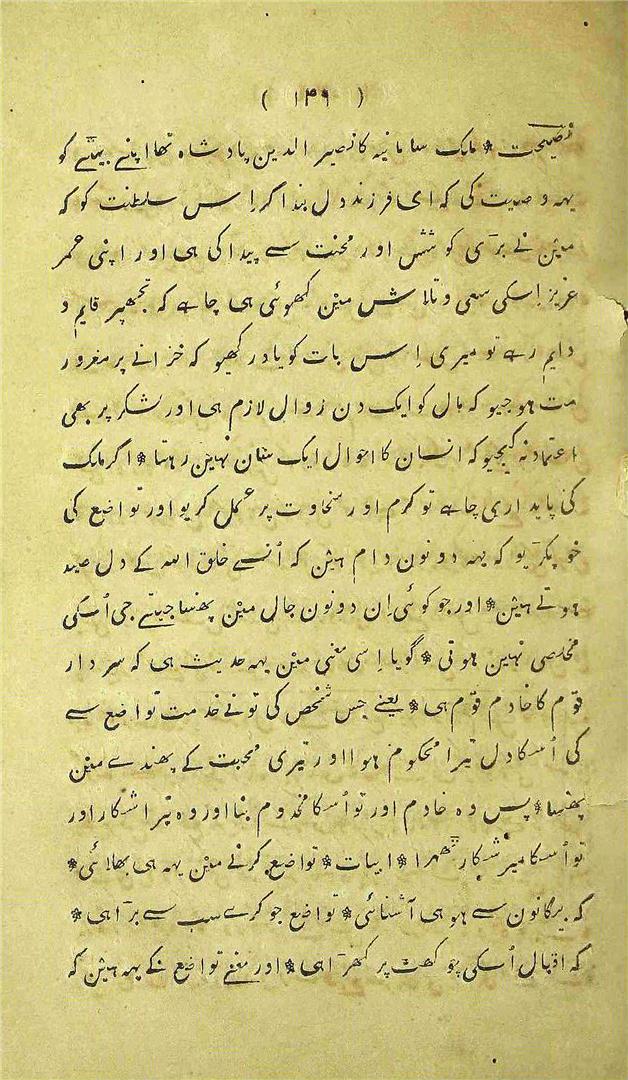 ( ۱۴۹ )
نصیحت * ملک سامانیہ کا نصیر الدین پادشاہ تھا اپنے بیٹے کو
یہہ وصیت کی کہ ای فرزند دل بند اگر اِس سلطنت کو کہ
میں نے بڑی کوشش اور محنت سے پیدا کی ہی اور اپنی عمر
عزیز اِسکی سعی و تلاش میں کھوئی ہی چاہے کہ تجھپر قایم و
دایم رہے تو میری اِس بات کو یاد رکھیو کہ خزانے پر مغرور
مت ہوجیو کہ مال کو ایک دن زوال لازم ہی اور لشکر پر بھی
اعتماد نہ کیجیو کہ انسان کا احوال ایک سان نہیں رہتا * اگر ملک
کی پایداری چاہے تو کرم اور سخاوت پر عمل کریو اور تواضع کی
خو پکڑیو کہ یہہ دونون دام ہیں کہ اُنسے خلق اللہ کے دل صید
ہوتے ہیں * اور جو کوئی اِن دونون جال میں پھنسا جیتے جی اُسکی
مخلصی نہیں ہوتی * گویا اِسی معنی میں یہہ حدیث ہی کہ سردار
قوم کا خادم قوم ہی * یعنے جس شخص کی تونے خدمت تواضع سے
کی اُسکا دل تیرا محکوم ہوا اور تیری محبت کے پھندے میں
پھنسا * پس وہ خادم اور تو اُسکا مخدوم بنا اور وہ تیرا شکار اور
تو اُسکا میر شکار ٹھہرا * ابیات * تواضع کرنے میں یہہ ہی بھلائی *
کہ بیگانون سے ہو ہی آشنائی * تواضع جو کرے سب سے بڑا ہی *
کہ اقبال اُسکی چوکھٹ پر کھڑا ہی * اور معنے تواضع کے یہہ ہیں کہ